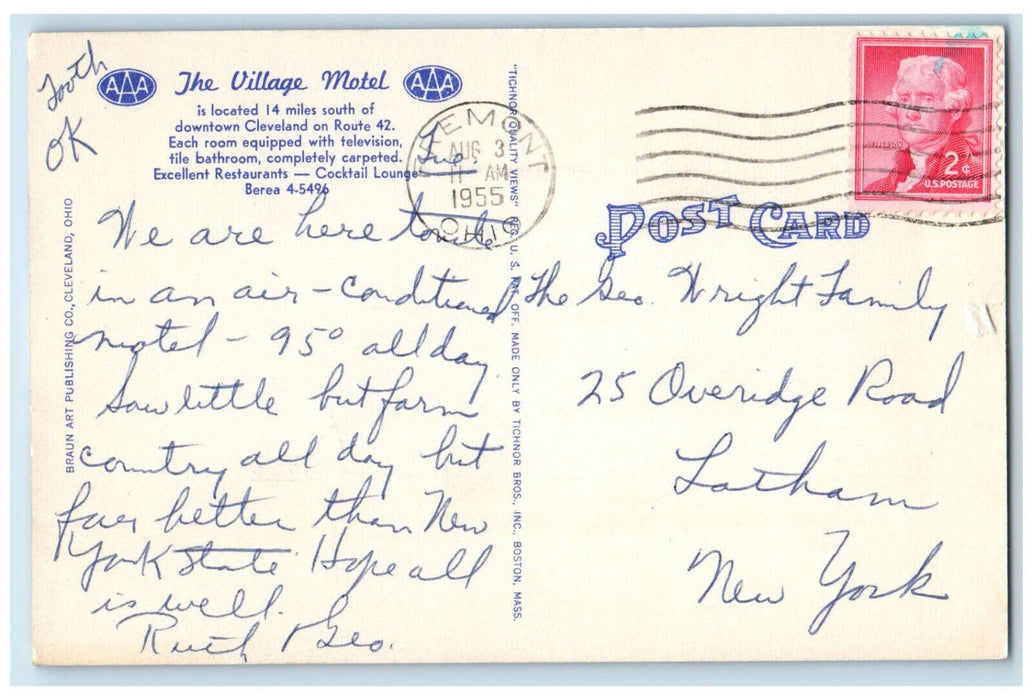 Tooth
OK
AAA The Village Motel AAA
is located 14 miles south of
downtown Cleveland on Route 42.
Each room equipped with television,
tile bathroom, completely carpeted.
Excellent Restaurants — Cocktail Lounge
Berea 4-5496
Tue.
We are here tonite
in an air-conditioned
motel - 95° all day.
Saw little but farm
country all day but
far better than New
York State Hope all
is well.
Ruth & Geo.
BRAUN ART PUBLISHING CO., CLEVELAND, OHIO
"TICHNOR QUALITY VIEWS" REG. U. S. PAT. OFF. MADE ONLY BY TICHNOR BROS., INC., BOSTON, MASS.
AUG 3
11 AM
1955
OHIO
JEFFERSON
2¢
U.S. POSTAGE
POST CARD
The Geo. Wright Family
25 Overidge Road
Latham
New York